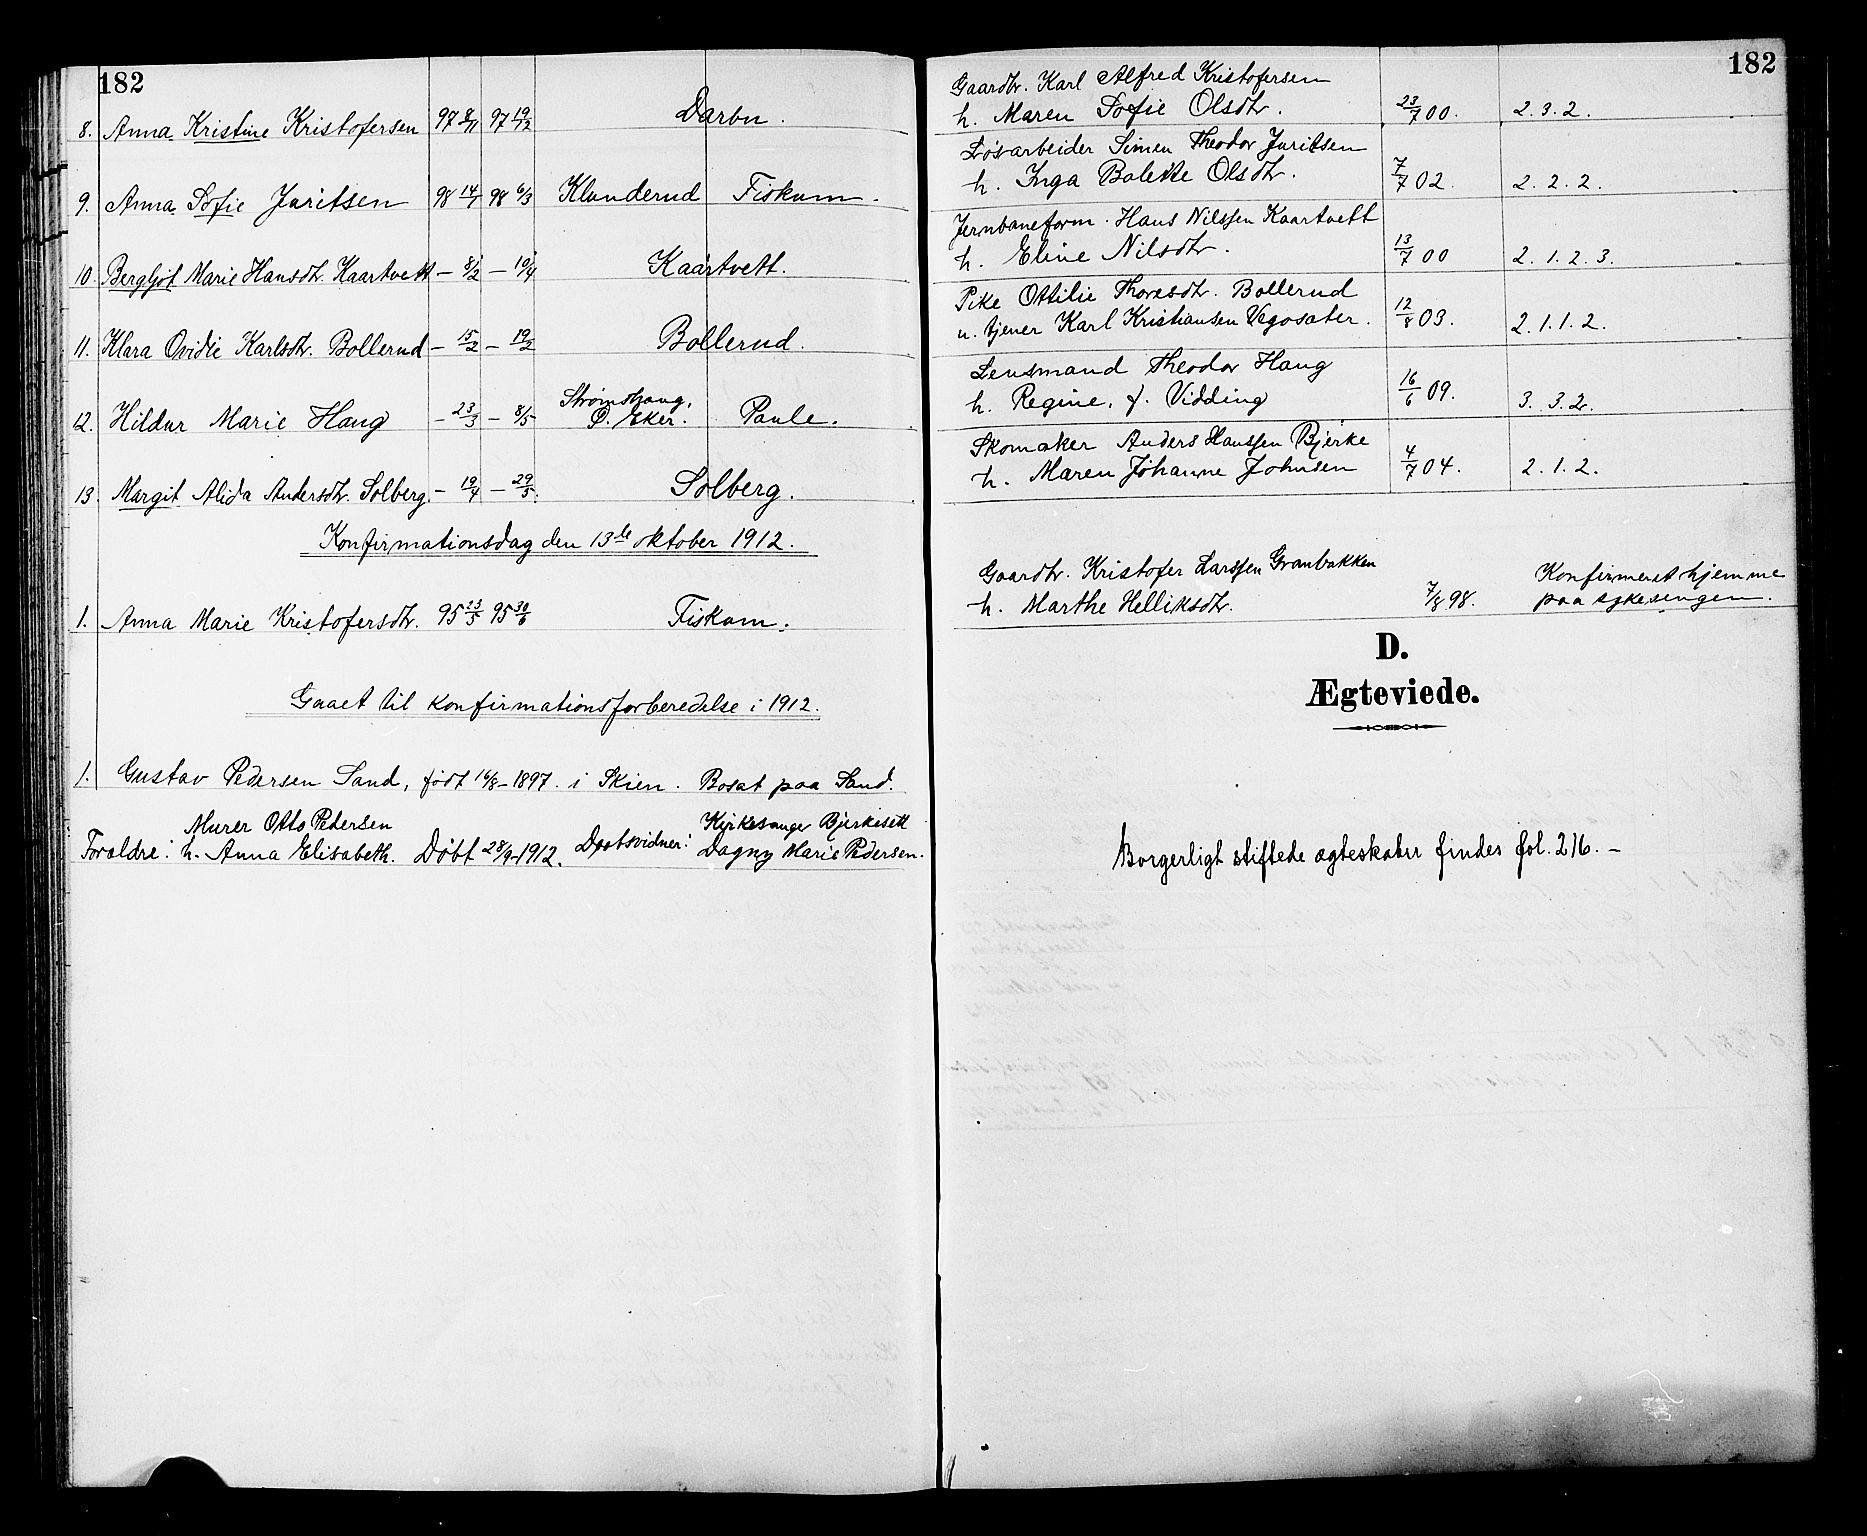 182
8. Anna Kristine Kristofersen 97 8/11 97 19/12 Darbu.
9. Anna Sofie Juritsen 98 14/1 98 6/3 Klunderud Fiskum.
10. Bergljot Marie Hansdtr. Kaartvett – 8/2 – 10/4 Kaartvett.
11. Klara Ovidie Karlsdtr. Bollerud – 15/2 – 19/2 Bollerud.
Strømshaug,
12. Hildur Marie Haug – 23/3 – 8/5 Ø. Eker. Paule.
13 Margit Alida Andersdtr. Solberg. – 19/4 – 29/5. Solberg.
Konfirmationsdag den 13de oktober 1912.
1. Anna Marie Kristofersdtr. 95 23/5 95 30/6 Fiskum.
Gaaet til konfirmationsforberedelse i 1912.
1. Gustav Pedersen Sand, født 16/8 – 1897. i Skien. Bosat paa Sand.
Murer Otto Pedersen Kirkesanger Bjerkesett
Forældre: h. Anna Elisabeth. Døbt 28/9–1912. Daabsvidner: Dagny Marie Pedersen.
182
Gaardbr. Karl Alfred Kristofersen
h. Maren Sofie Olsdtr. 23/7 00. 2. 3. 2.
Løsarbeider Simen Theodor Juritsen
h. Inga Bolette Olsdtr. 7/7 02. 2. 2. 2.
Jernbaneform. Hans Nilssen Kaartvett
h. Eline Nilsdtr. 13/7 00 2. 1. 2. 3.
Pike Ottilie Thoresdtr. Bollerud
u. tjener Karl Kristiansen Vegosæter. 12/8 03. 2. 1. 1. 2.
Lensmand Theodor Haug
h. Regine, f. Vidding 16/6 09. 3. 3. 2.
Skomaker Anders Hanssen Bjerke
h. Maren Johanne Johnsen 4/7 04. 2. 1. 2.
Gaardbr. Kristofer Larssen Granbakken Konfirmeret hjemme
h. Marthe Helliksdtr. 7/8 98. paa sykesengen.
D.
Ægteviede.
Borgerligt stiftede ægteskaber findes fol. 216. –